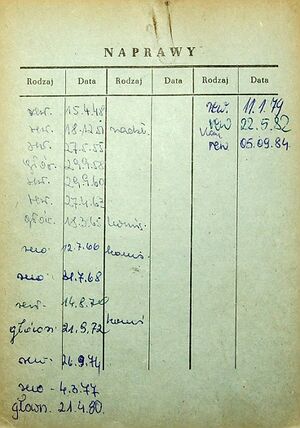 NAPRAWY
Rodzaj Data Rodzaj Data Rodzaj Data
rew. 15.4.48 rew. 11.1.79
rew. 18.12.51 rew 22.5.82
rew. 27.5.55 rew 05.09.84.
głów. 29.9.58
rew. 29.9.60
rew. 27.4.63
głów. 18.3.65
rew. 12.7.66
rew. 31.7.68
rew. 14.8.70
główn. 21.9.72
rew. 26.9.74
rew. 4.3.77
główn. 21.4.80.